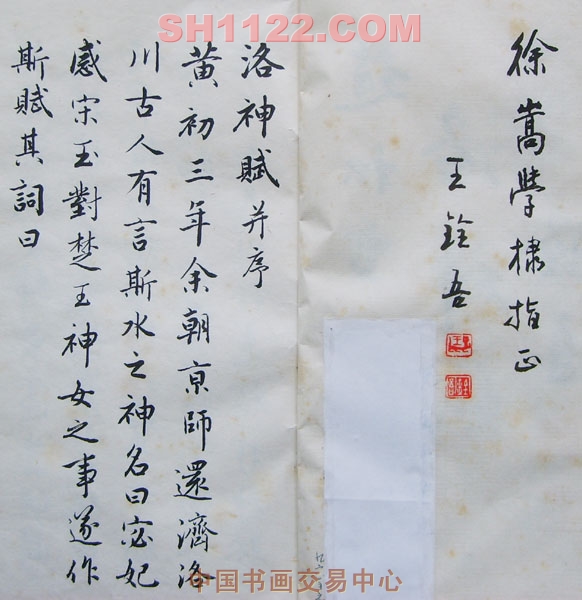 SH1122.COM
徐嵩學棣指正
王銓吾
洛神賦并序
黄初三年余朝京師還濟洛
川古人有言斯水之神名曰宓妃
感宋玉對楚王神女之事遂作
斯賦其詞曰
中国书画交易中心